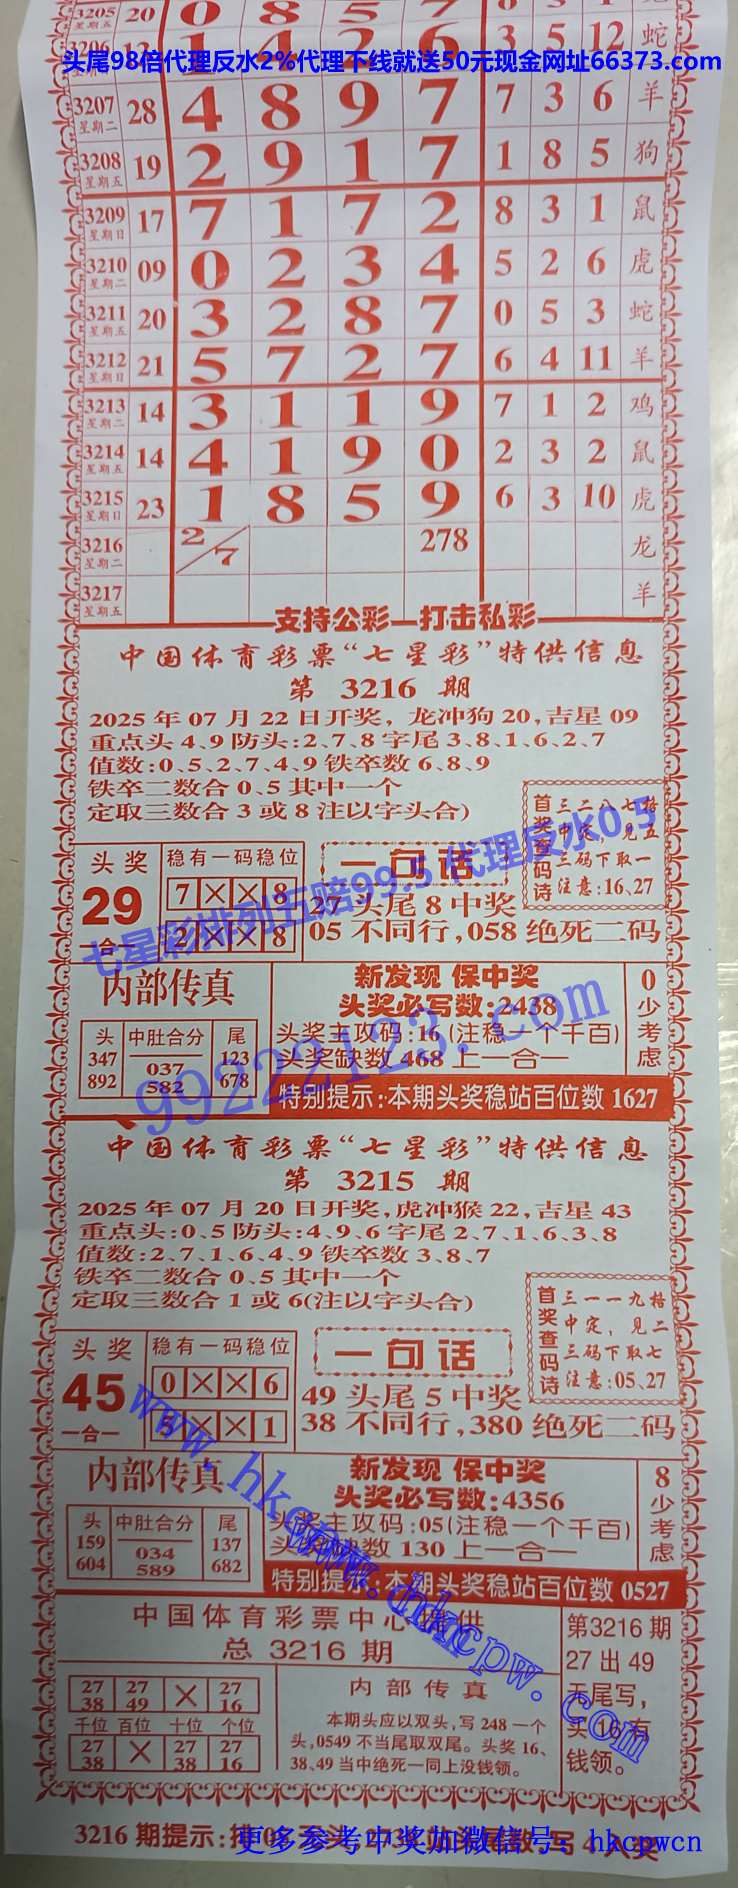 3205 星期五 20 0 8 5 7
3206 1 4 2 6 3 5 12 蛇
头尾98倍代理反水2%代理下线就送50元现金网址66373.com
3207 星期二 28 4 8 9 7 7 3 6 羊
3208 星期五 19 2 9 1 7 1 8 5 狗
3209 星期日 17 7 1 7 2 8 3 1 鼠
3210 星期二 09 0 2 3 4 5 2 6 虎
3211 星期五 20 3 2 8 7 0 5 3 蛇
3212 星期日 21 5 7 2 7 6 4 11 羊
3213 星期二 14 3 1 1 9 7 1 2 鸡
3214 星期五 14 4 1 9 0 2 3 2 鼠
3215 星期日 23 1 8 5 9 6 3 10 虎
3216 星期二 2/7 278 龙
3217 星期五 羊
支持公彩—打击私彩
中国体育彩票“七星彩”特供信息
第 3216 期
2025年07月22日开奖,龙冲狗20,吉星09
重点头4、9防头:2、7、8字尾3、8、1、6、2、7
值数:0、5、2、7、4、9铁卒数6、8、9
铁卒二数合0、5其中一个
定取三数合3或8注以字头合)
首奖查码诗
三二八七格
中定,见五
三码下取一
注意:16、27
头奖
29
一合一
稳有一码稳位
7××8
2××8
一句话
27头尾8中奖
05不同行,058绝死二码
七星彩排列五赔99.5 代理反水0.5
内部传真
头 中肚合分 尾
347 037 123
892 582 678
新发现 保中奖
头奖必写数:2438
头奖主攻码:16(注稳一个千百)
头奖缺数468上一合一
0少考虑
特别提示:本期头奖稳站百位数1627
99222123.com
中国体育彩票“七星彩”特供信息
第 3215 期
2025年07月20日开奖,虎冲猴22,吉星43
重点头:0、5防头:4、9、6字尾2、7、1、6、3、8
值数:2、7、1、6、4、9铁卒数3、8、7
铁卒二数合0、5其中一个
定取三数合1或6(注以字头合)
首奖查码诗
三一一九格
中定,见二
三码下取七
注意:05、27
头奖
45
一合一
稳有一码稳位
0××6
5××1
一句话
49头尾5中奖
38不同行,380绝死二码
内部传真
头 中肚合分 尾
159 034 137
604 589 682
新发现 保中奖
头奖必写数:4356
头奖主攻码:05(注稳一个千百)
头奖缺数130上一合一
8少考虑
特别提示:本期头奖稳站百位数0527
www.hkcpw.com
www.hkcpw.com
中国体育彩票中心提供
总3216期
27 27 × 27
38 49 16
千位 百位 十位 个位
27 × 27 27
38 38 16
内部传真
本期头应以双头,写248一个
头,0549不当尾取双尾。头奖16、
38、49当中绝死一同上没钱领。
第3216期
27出49
无尾写,
头16有
钱领。
3216期提示:
更多参考中奖加微信号:hkcpwcn